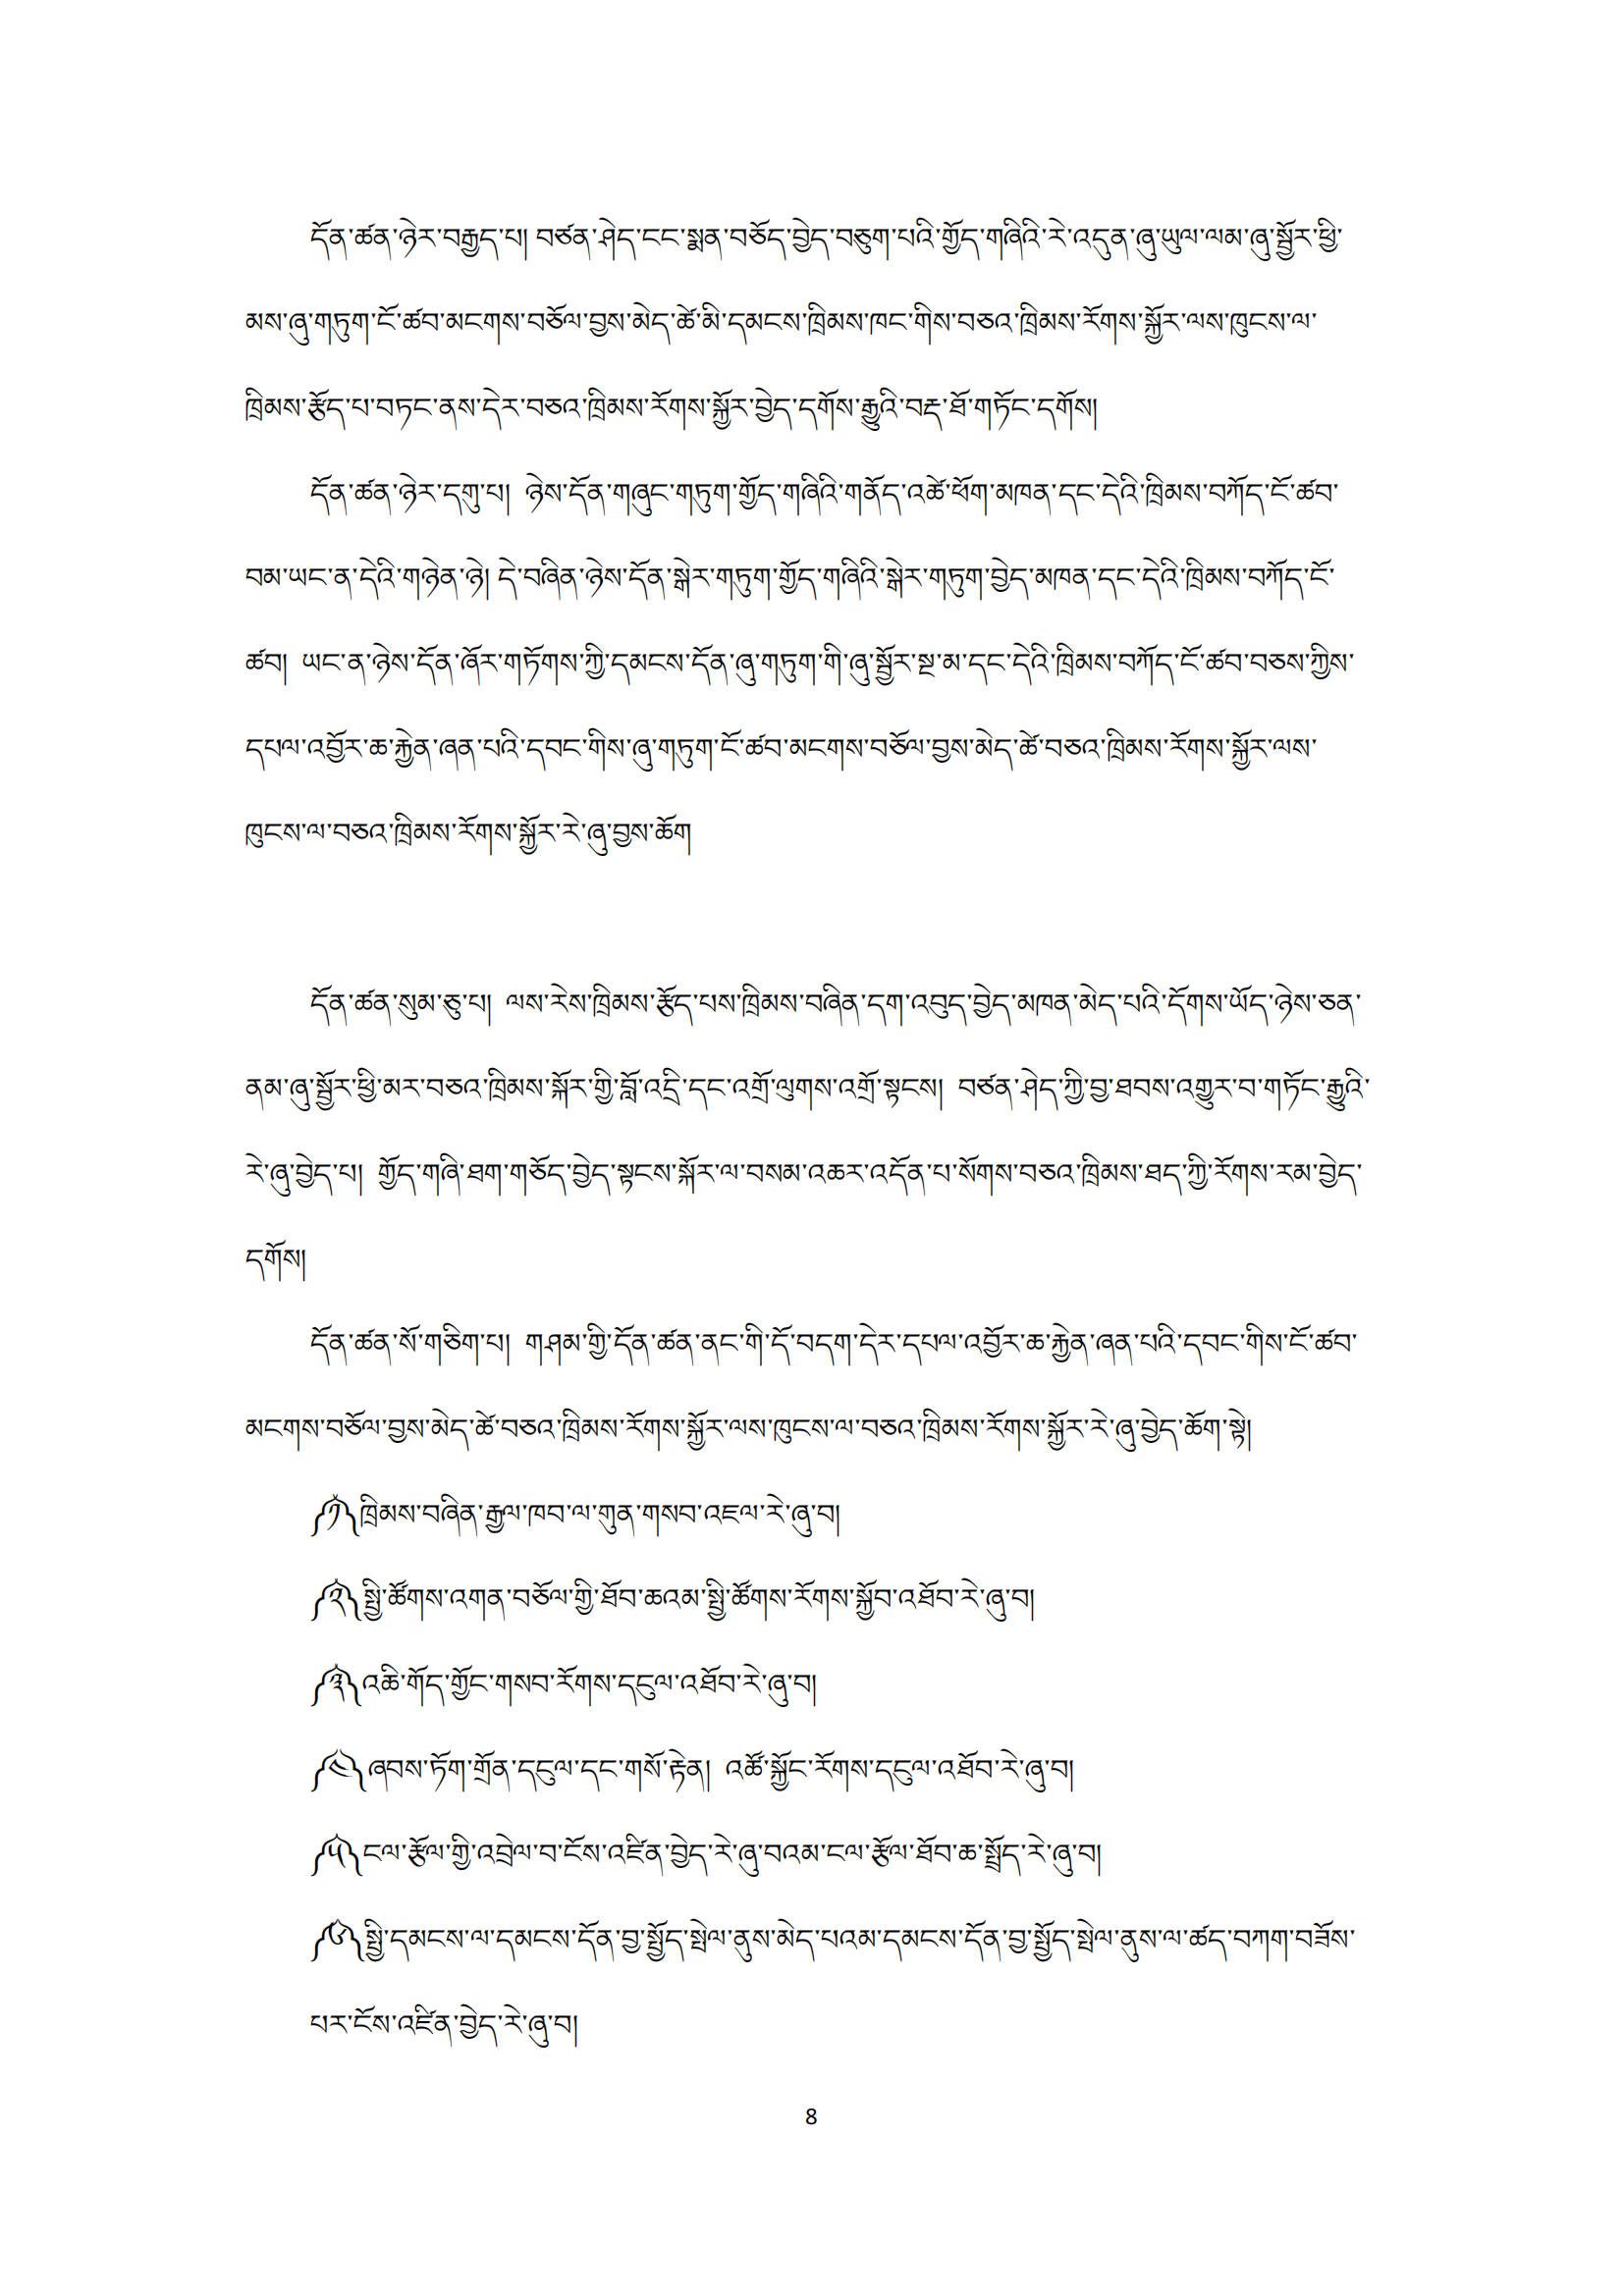 དོན་ཚན་ཉེར་བརྒྱད་པ། བཙན་ཤེད་ངང་སྨན་བཅོད་བྱེད་བཅུག་པའི་གྱོད་གཞིའི་རེ་འདུན་ཞུ་ཡུལ་ལམ་ཞུ་སྦྱོར་ཕྱི་
མས་ཞུ་གཏུག་ངོ་ཚབ་མངགས་བཅོལ་བྱས་མེད་ཚེ་མི་དམངས་ཁྲིམས་ཁང་གིས་བཅའ་ཁྲིམས་རོགས་སྐྱོར་ལས་ཁུངས་ལ་
ཁྲིམས་རྩོད་པ་བཏང་ནས་དེར་བཅའ་ཁྲིམས་རོགས་སྐྱོར་བྱེད་དགོས་རྒྱུའི་བརྡ་ཐོ་གཏོང་དགོས།
དོན་ཚན་ཉེར་དགུ་པ།  ཉེས་དོན་གཞུང་གཏུག་གྱོད་གཞིའི་གནོད་འཚེ་ཕོག་མཁན་དང་དེའི་ཁྲིམས་བཀོད་ངོ་ཚབ་
བམ་ཡང་ན་དེའི་གཉེན་ཉེ། དེ་བཞིན་ཉེས་དོན་སྒེར་གཏུག་གྱོད་གཞིའི་སྒེར་གཏུག་བྱེད་མཁན་དང་དེའི་ཁྲིམས་བཀོད་ངོ་
ཚབ།  ཡང་ན་ཉེས་དོན་ཞོར་གཏོགས་ཀྱི་དམངས་དོན་ཞུ་གཏུག་གི་ཞུ་སྦྱོར་སྔ་མ་དང་དེའི་ཁྲིམས་བཀོད་ངོ་ཚབ་བཅས་ཀྱིས་
དཔལ་འབྱོར་ཆ་རྐྱེན་ཞན་པའི་དབང་གིས་ཞུ་གཏུག་ངོ་ཚབ་མངགས་བཅོལ་བྱས་མེད་ཚེ་བཅའ་ཁྲིམས་རོགས་སྐྱོར་ལས་
ཁུངས་ལ་བཅའ་ཁྲིམས་རོགས་སྐྱོར་རེ་ཞུ་བྱས་ཆོག
དོན་ཚན་སུམ་ཅུ་པ།  ལས་རེས་ཁྲིམས་རྩོད་པས་ཁྲིམས་བཞིན་དག་འབུད་བྱེད་མཁན་མེད་པའི་དོགས་ཡོད་ཉེས་ཅན་
ནམ་ཞུ་སྦྱོར་ཕྱི་མར་བཅའ་ཁྲིམས་སྐོར་གྱི་བློ་འདྲི་དང་འགྲོ་ལུགས་འགྲོ་སྟངས།  བཙན་ཤེད་ཀྱི་བྱ་ཐབས་འགྱུར་བ་གཏོང་རྒྱུའི་
རེ་ཞུ་བྱེད་པ།  གྱོད་གཞི་ཐག་གཅོད་བྱེད་སྟངས་སྐོར་ལ་བསམ་འཆར་འདོན་པ་སོགས་བཅའ་ཁྲིམས་ཐད་ཀྱི་རོགས་རམ་བྱེད་
དགོས།
དོན་ཚན་སོ་གཅིག་པ།  གཤམ་གྱི་དོན་ཚན་ནང་གི་དོ་བདག་དེར་དཔལ་འབྱོར་ཆ་རྐྱེན་ཞན་པའི་དབང་གིས་ངོ་ཚབ་
མངགས་བཅོལ་བྱས་མེད་ཚེ་བཅའ་ཁྲིམས་རོགས་སྐྱོར་ལས་ཁུངས་ལ་བཅའ་ཁྲིམས་རོགས་སྐྱོར་རེ་ཞུ་བྱེད་ཆོག་སྟེ།
༼༡༽ཁྲིམས་བཞིན་རྒྱལ་ཁབ་ལ་གུན་གསབ་འཇལ་རེ་ཞུ་བ།
༼༢༽སྤྱི་ཚོགས་འགན་བཅོལ་གྱི་ཐོབ་ཆའམ་སྤྱི་ཚོགས་རོགས་སྐྱོབ་འཐོབ་རེ་ཞུ་བ།
༼༣༽འཆི་གོད་གྱོང་གསབ་རོགས་དངུལ་འཐོབ་རེ་ཞུ་བ།
༼༤༽ཞབས་ཏོག་གྲོན་དངུལ་དང་གསོ་རྟེན།  འཚོ་སྐྱོང་རོགས་དངུལ་འཐོབ་རེ་ཞུ་བ།
༼༥༽ངལ་རྩོལ་གྱི་འབྲེལ་བ་ངོས་འཛིན་བྱེད་རེ་ཞུ་བའམ་ངལ་རྩོལ་ཐོབ་ཆ་སྤྲོད་རེ་ཞུ་བ།
༼༦༽སྤྱི་དམངས་ལ་དམངས་དོན་བྱ་སྤྱོད་སྤེལ་ནུས་མེད་པའམ་དམངས་དོན་བྱ་སྤྱོད་སྤེལ་ནུས་ལ་ཚད་བཀག་བཟོས་
པར་ངོས་འཛིན་བྱེད་རེ་ཞུ་བ།
8